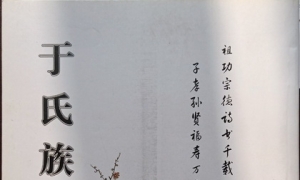 于氏族
祖功宗德诗书千载
子孝孙贤福寿万